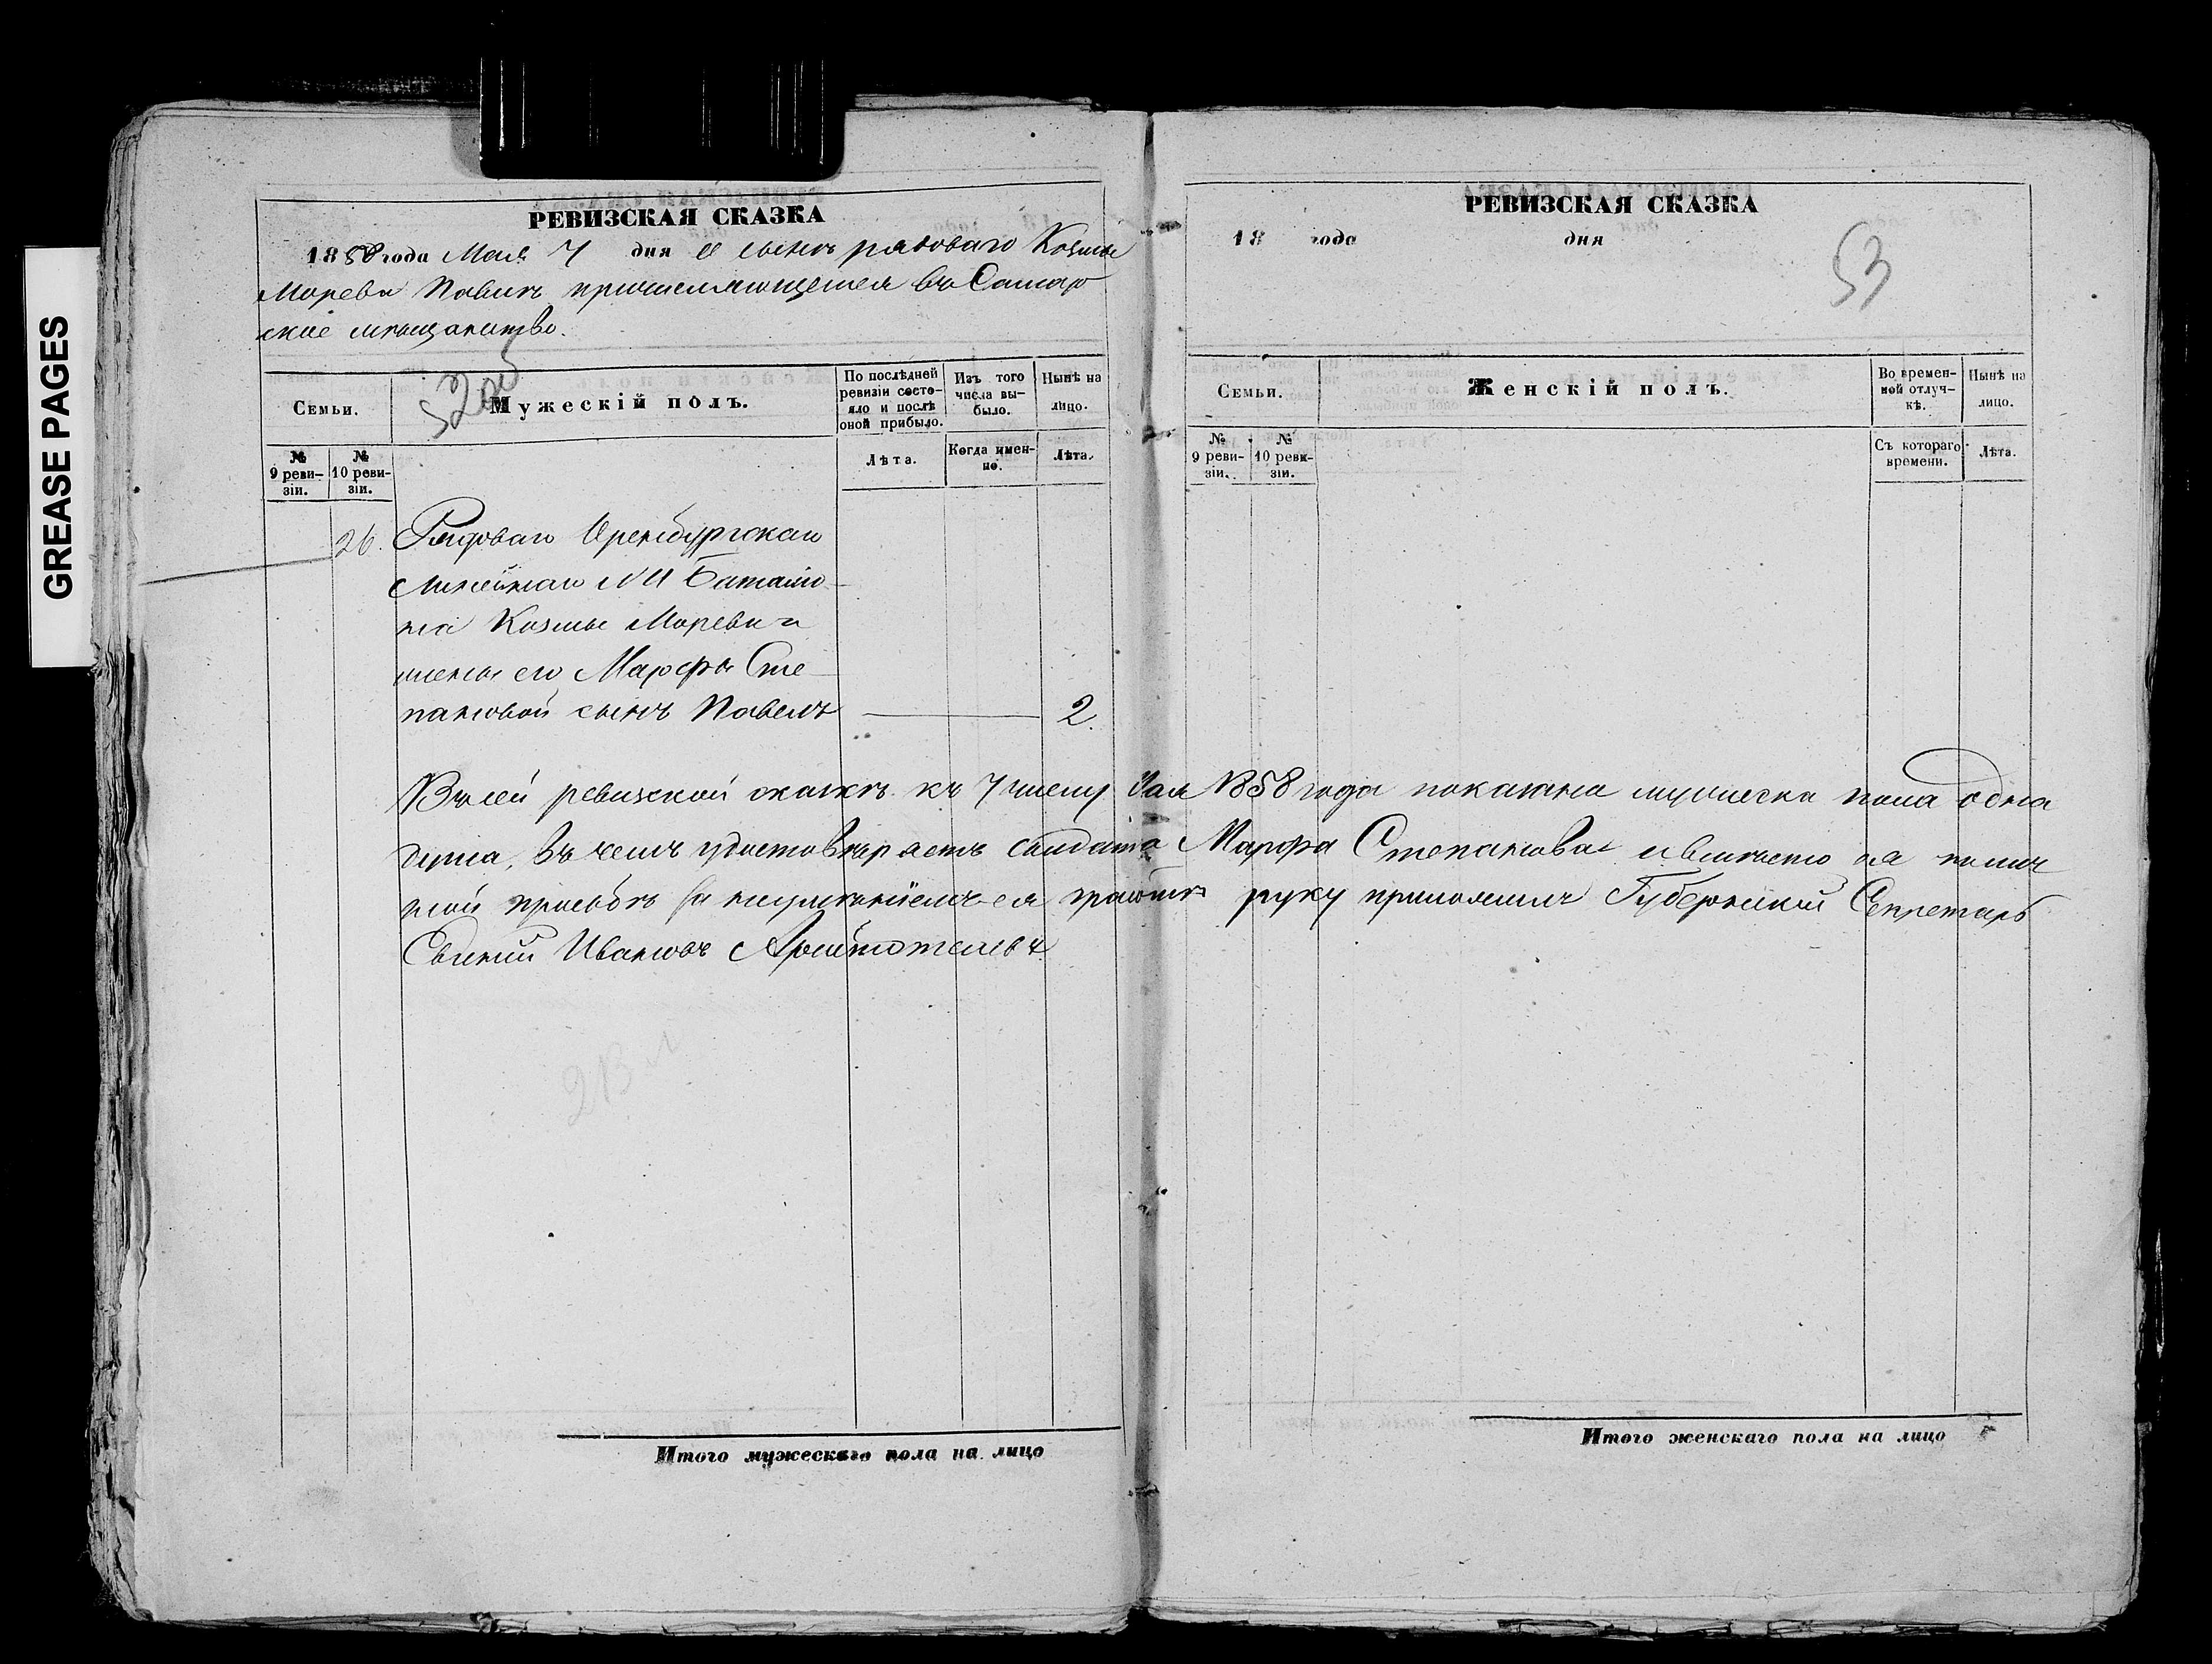 GREASE PAGES
РЕВИЗСКАЯ СКАЗКА
1858 года Мая 7 дня О сынѣ рядоваго Козмы
Морева Павлѣ причисляющемся въ Самар
ское мѣщанство.
52 об
Семьи.
Мужескій полъ.
По послѣдней ревизіи состояло и послѣ оной прибыло.
Изъ того числа выбыло.
Нынѣ на лицо.
№ 9 ревизіи.
№ 10 ревизіи.
Лѣта.
Когда именно.
Лѣта.
26. Рядоваго Оренбургскаго
Линейнаго № Баталіо
на Козмы Морева и
жены его Марфы Сте
пановой сынъ Павелъ 2.
Въ сей ревизской сказкѣ къ 7 числу Мая 1858 года показана мужеска пола одна
душа, въ чемъ удостовѣряетъ солдатка Марфа Степанова а вмѣсто ея по лич
ной просьбѣ за неумѣніемъ ея грамотѣ руку приложилъ Губернскій Секретарь
Ивановъ
РЕВИЗСКАЯ СКАЗКА
18 года дня
53
Семьи.
Женскій полъ.
Во временной отлучкѣ.
Нынѣ на лицо.
№ 9 ревизіи.
№ 10 ревизіи.
Съ котораго времени.
Лѣта.
Итого мужескаго пола на лицо
Итого женскаго пола на лицо